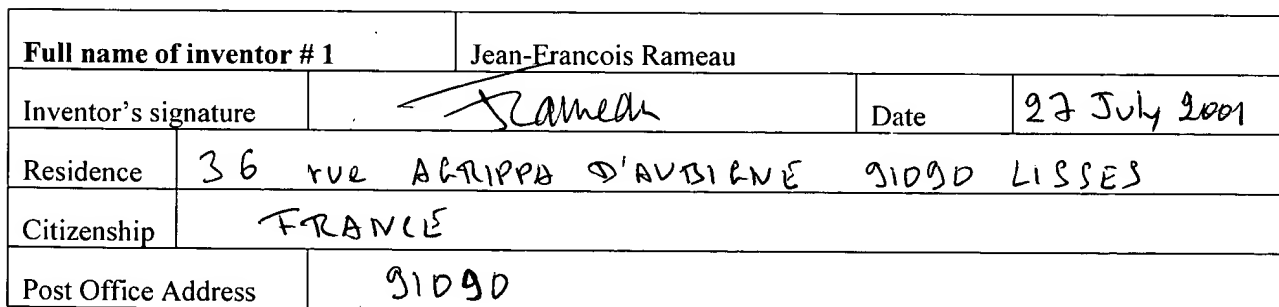 Full name of inventor # 1 Jean-Francois Rameau
Inventor's signature Rameau Date 27 July 2001
Residence 36 rue AGRIPPA D'AUBIGNE 91090 LISSES
Citizenship FRANCE
Post Office Address 91090